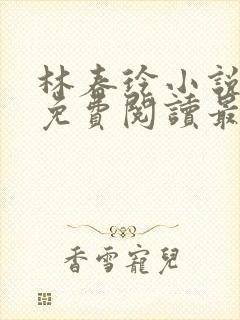 林春徐小說
免費閱讀最
香雪寵兒